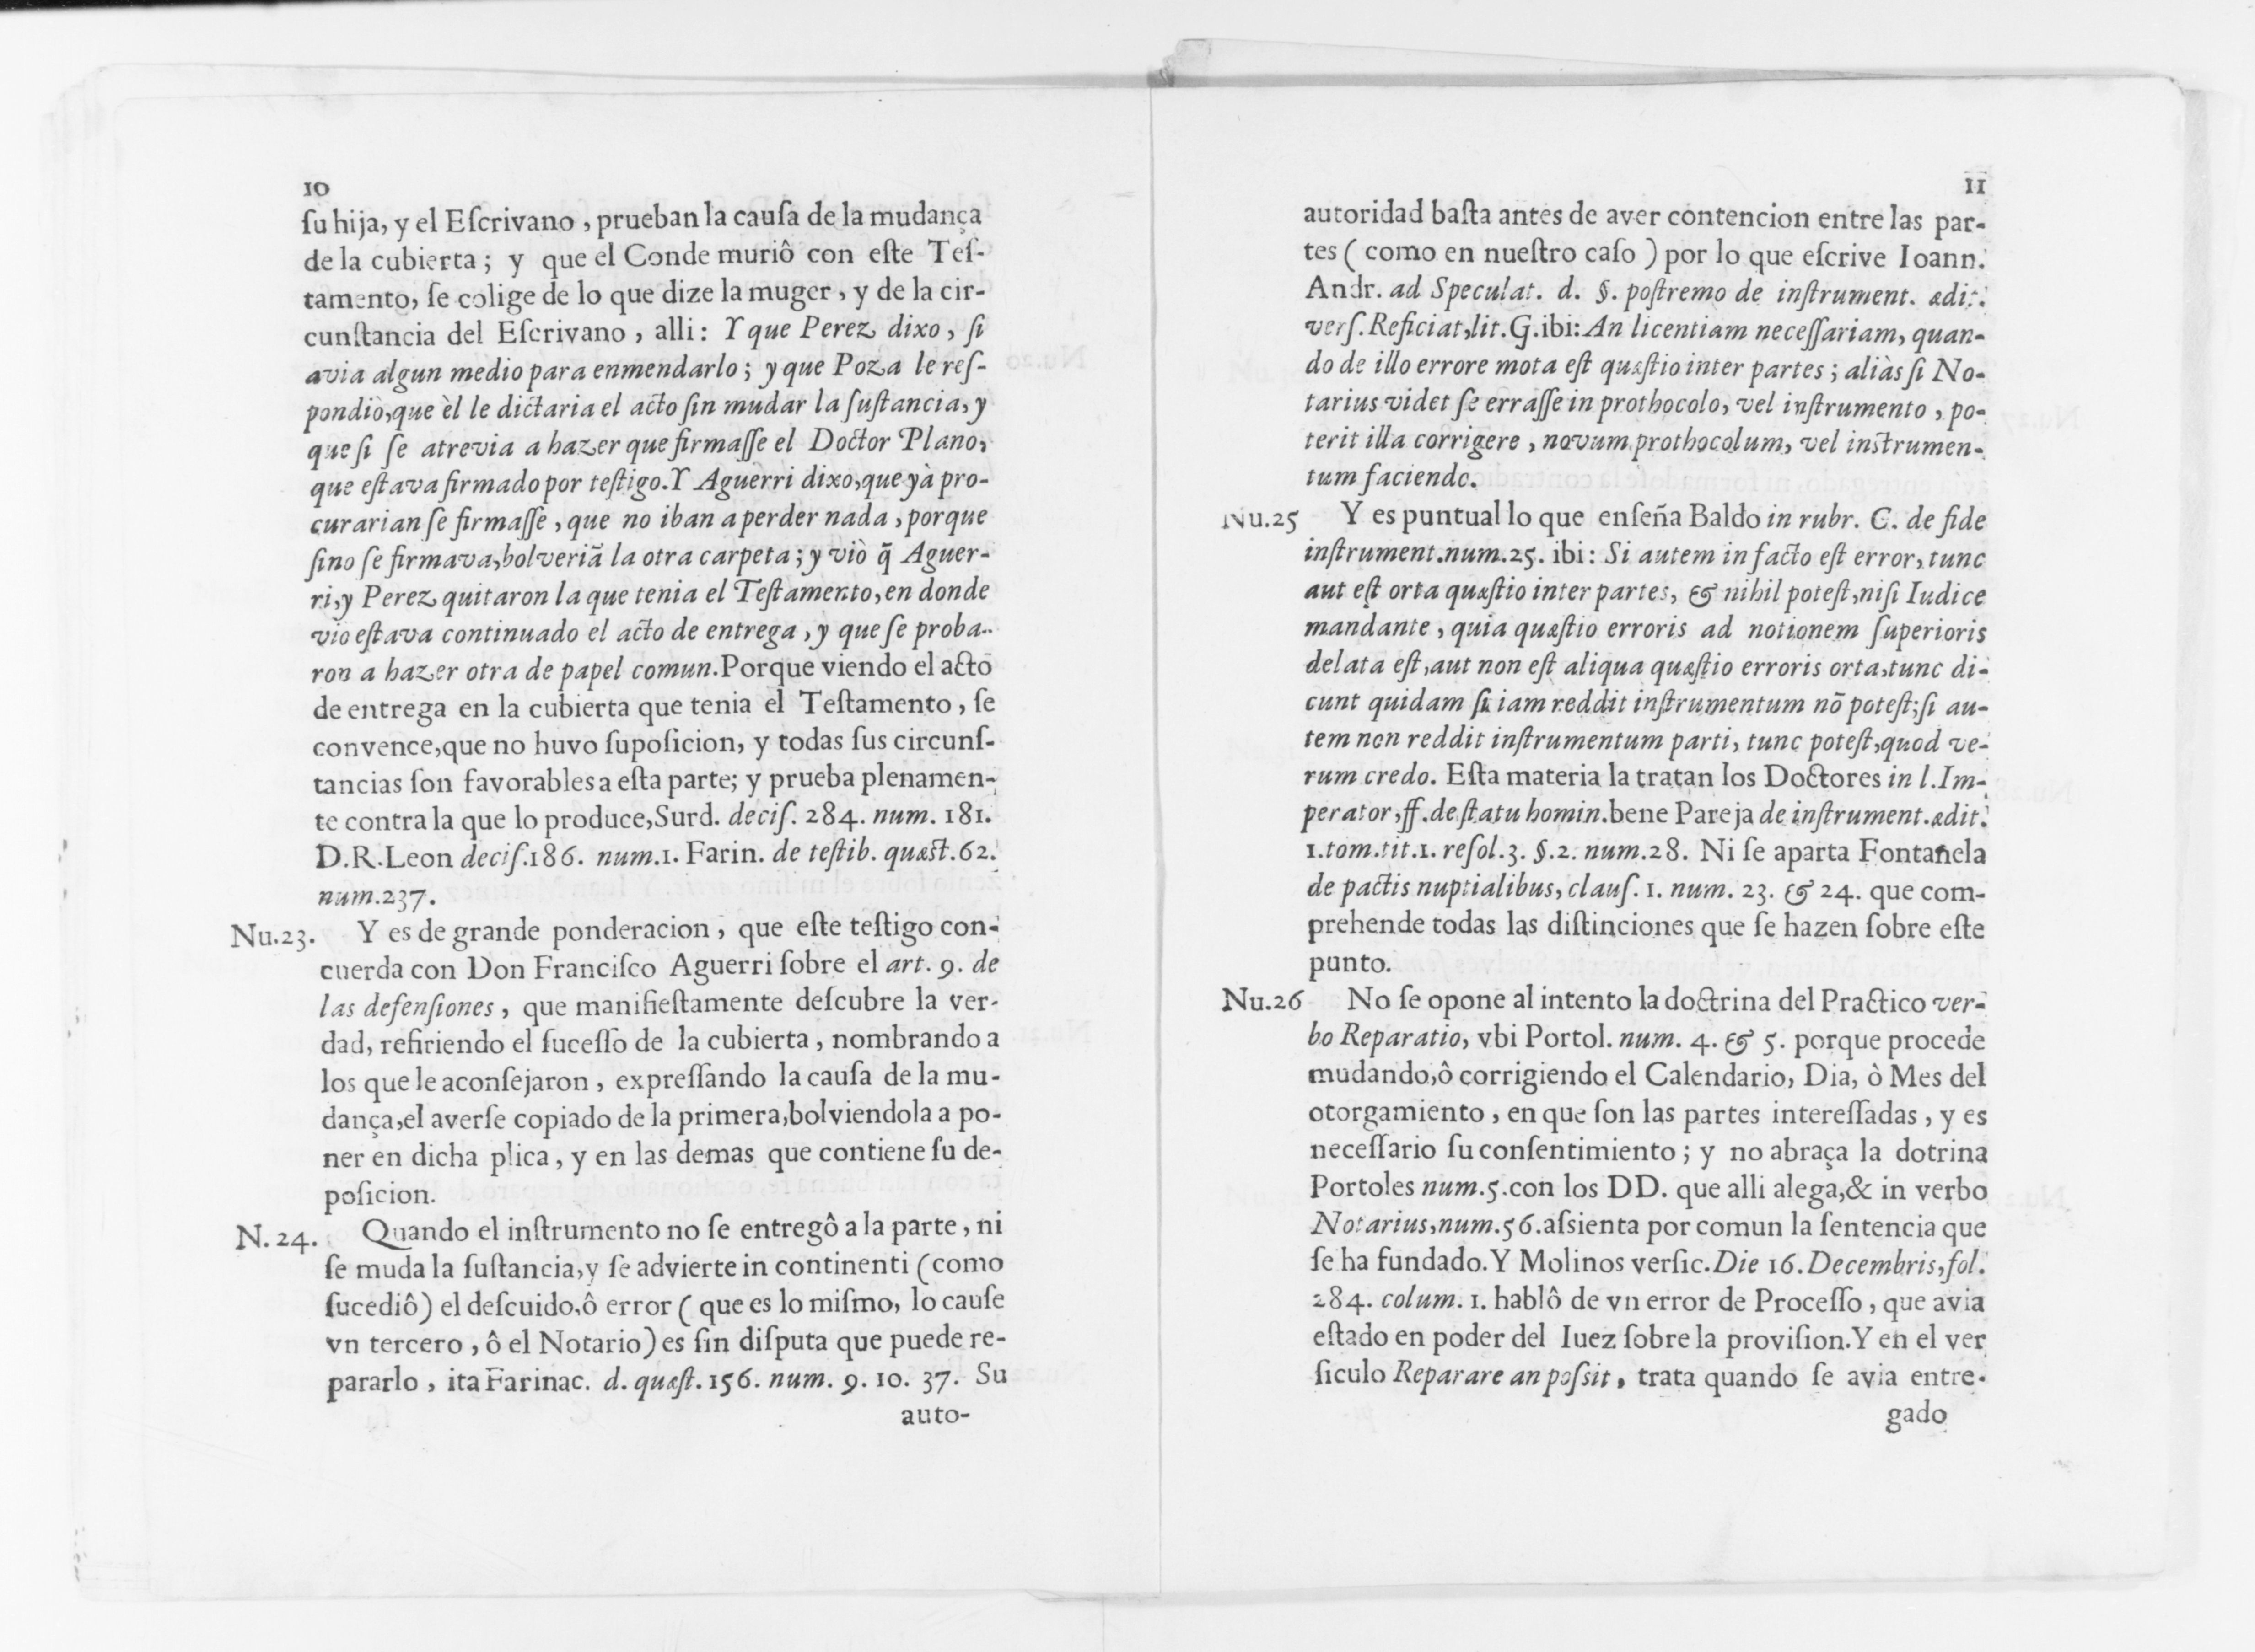 10
ſu hija, y el Eſcrivano, prueban la cauſa de la mudança
de la cubierta; y que el Conde muriô con eſte Teſ-
tamento, ſe colige de lo que dize la muger, y de la cir-
cunſtancia del Eſcrivano, alli: Y que Perez dixo, ſi
avia algun medio para enmendarlo; y que Poza le reſ-
pondiò, que èl le dictaria el acto ſin mudar la ſuſtancia, y
que ſi ſe atrevia a hazer que firmaſſe el Doctor Plano,
que eſtava firmado por teſtigo. Y Aguerri dixo, que yà pro-
curarian ſe firmaſſe, que no iban a perder nada, porque
ſino ſe firmava, bolveriã la otra carpeta; y viò q̃ Aguer-
ri, y Perez quitaron la que tenia el Teſtamento, en donde
viò eſtava continuado el acto de entrega, y que ſe proba-
ron a hazer otra de papel comun. Porque viendo el acto
de entrega en la cubierta que tenia el Teſtamento, ſe
convence, que no huvo ſupoſicion, y todas ſus circunſ-
tancias ſon favorables a eſta parte; y prueba plenamen-
te contra la que lo produce, Surd. deciſ. 284. num. 181.
D.R. Leon deciſ. 186. num. 1. Farin. de teſtib. quæſt. 62.
num. 237.
Nu. 23. Y es de grande ponderacion, que eſte teſtigo con-
cuerda con Don Franciſco Aguerri ſobre el art. 9. de
las defenſiones, que manifieſtamente deſcubre la ver-
dad, refiriendo el ſuceſſo de la cubierta, nombrando a
los que le aconſejaron, expreſſando la cauſa de la mu-
dança, el averſe copiado de la primera, bolviendola a po-
ner en dicha plica, y en las demas que contiene ſu de-
poſicion.
N. 24. Quando el inſtrumento no ſe entregô a la parte, ni
ſe muda la ſuſtancia, y ſe advierte in continenti (como
ſucediô) el deſcuido, ô error (que es lo miſmo, lo cauſe
vn tercero, ô el Notario) es ſin diſputa que puede re-
pararlo, ita Farinac. d. quæſt. 156. num. 9. 10. 37. Su
auto-
11
autoridad baſta antes de aver contencion entre las par-
tes (como en nueſtro caſo) por lo que eſcrive Ioann.
Andr. ad Speculat. d. §. poſtremo de inſtrument. ædit.
verſ. Reficiat, lit. G. ibi: An licentiam neceſſariam, quan-
do de illo errore mota eſt quæſtio inter partes; aliàs ſi No-
tarius videt ſe erraſſe in prothocolo, vel inſtrumento, po-
terit illa corrigere, novum prothocolum, vel inſtrumen-
tum faciendo.
Nu. 25 Y es puntual lo que enſeña Baldo in rubr. C. de fide
inſtrument. num. 25. ibi: Si autem in facto eſt error, tunc
aut eſt orta quæſtio inter partes, & nihil poteſt, niſi Iudice
mandante, quia quæſtio erroris ad notionem ſuperioris
delata eſt, aut non eſt aliqua quæſtio erroris orta, tunc di-
cunt quidam ſi iam reddit inſtrumentum nõ poteſt; ſi au-
tem non reddit inſtrumentum parti, tunc poteſt, quod ve-
rum credo. Eſta materia la tratan los Doctores in l. Im-
perator, ff. de ſtatu homin. bene Pareja de inſtrument. ædit.
1. tom. tit. 1. reſol. 3. §. 2. num. 28. Ni ſe aparta Fontanela
de pactis nuptialibus, clauſ. 1. num. 23. & 24. que com-
prehende todas las diſtinciones que ſe hazen ſobre eſte
punto.
Nu. 26 No ſe opone al intento la doctrina del Practico ver-
bo Reparatio, vbi Portol. num. 4. & 5. porque procede
mudando, ô corrigiendo el Calendario, Dia, ò Mes del
otorgamiento, en que ſon las partes intereſſadas, y es
neceſſario ſu conſentimiento; y no abraça la dotrina
Portoles num. 5. con los DD. que alli alega, & in verbo
Notarius, num. 56. aſsienta por comun la ſentencia que
ſe ha fundado. Y Molinos verſic. Die 16. Decembris, fol.
284. colum. 1. hablô de vn error de Proceſſo, que avia
eſtado en poder del Iuez ſobre la proviſion. Y en el ver
ſiculo Reparare an poſsit, trata quando ſe avia entre-
gado